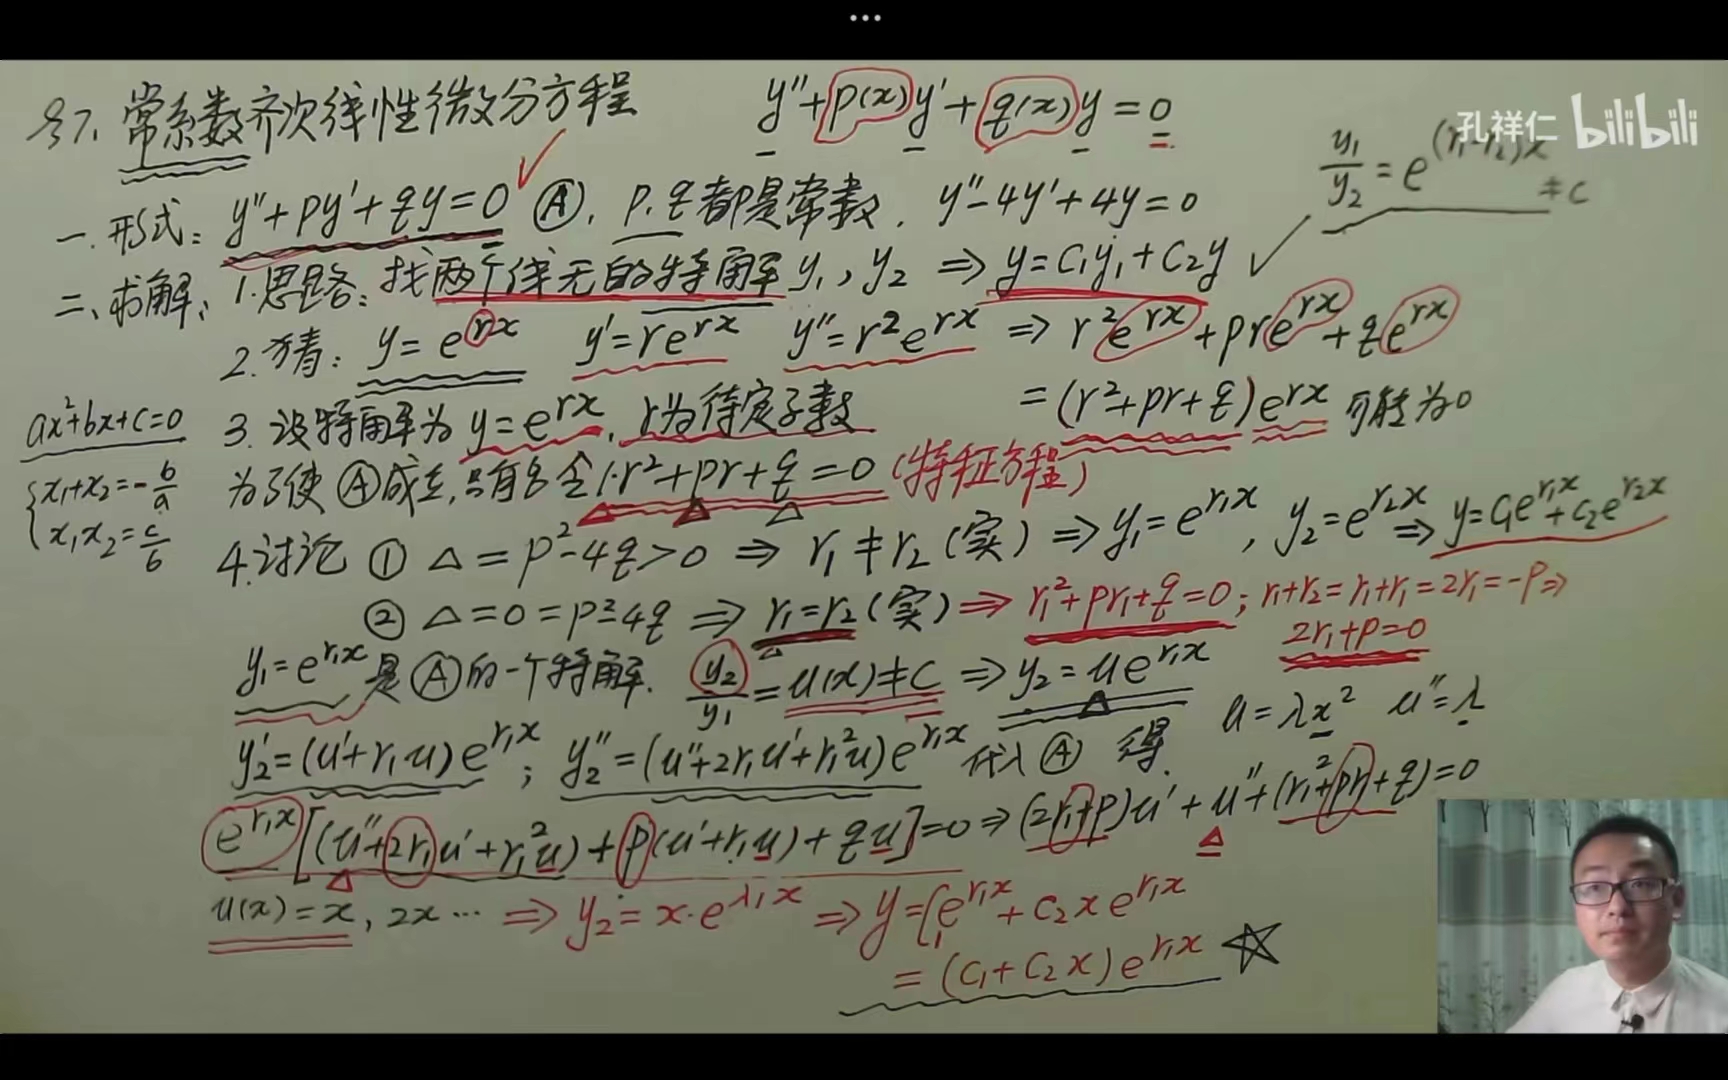 ...
§7. 常系数齐次线性微分方程 y''+p(x)y'+q(x)y=0
孔祥仁 bilibili
y₁/y₂=e^(r₁-r₂)x ≠C
一.形式: y''+py'+qy=0 Ⓐ. p.q都是常数. y''-4y'+4y=0
二、求解: 1.思路: 找两个线无的特解y₁,y₂ ⇒ y=C₁y₁+C₂y
2.猜: y=e^rx y'=re^rx y''=r²e^rx ⇒ r²e^rx+pre^rx+qe^rx
=(r²+pr+q)e^rx 可能为0
ax²+bx+c=0
{x₁+x₂=-b/a
x₁x₂=c/b
3.设特解为y=e^rx, r为待定系数
为了使Ⓐ成立,只有令1·r²+pr+q=0 (特征方程)
4.讨论 ① Δ=p²-4q>0 ⇒ r₁≠r₂(实) ⇒ y₁=e^r₁x, y₂=e^r₂x ⇒ y=C₁e^r₁x+C₂e^r₂x
② Δ=0=p²-4q ⇒ r₁=r₂(实) ⇒ r₁²+pr₁+q=0; r₁+r₂=r₁+r₁=2r₁=-p⇒
2r₁+p=0
y₁=e^r₁x是Ⓐ的一个特解. y₂/y₁=u(x)≠C ⇒ y₂=ue^r₁x
u=λx² u''=λ
y₂'=(u'+r₁u)e^r₁x; y₂''=(u''+2r₁u'+r₁²u)e^r₁x 代入Ⓐ 得.
e^r₁x[(u''+2r₁u'+r₁²u)+p(u'+r₁u)+qu]=0 ⇒ (2r₁+p)u'+u''+(r₁²+pr₁+q)=0
u(x)=x, 2x… ⇒ y₂=x·e^λ₁x ⇒ y=C₁e^r₁x+C₂xe^r₁x
=(C₁+C₂x)e^r₁x ☆